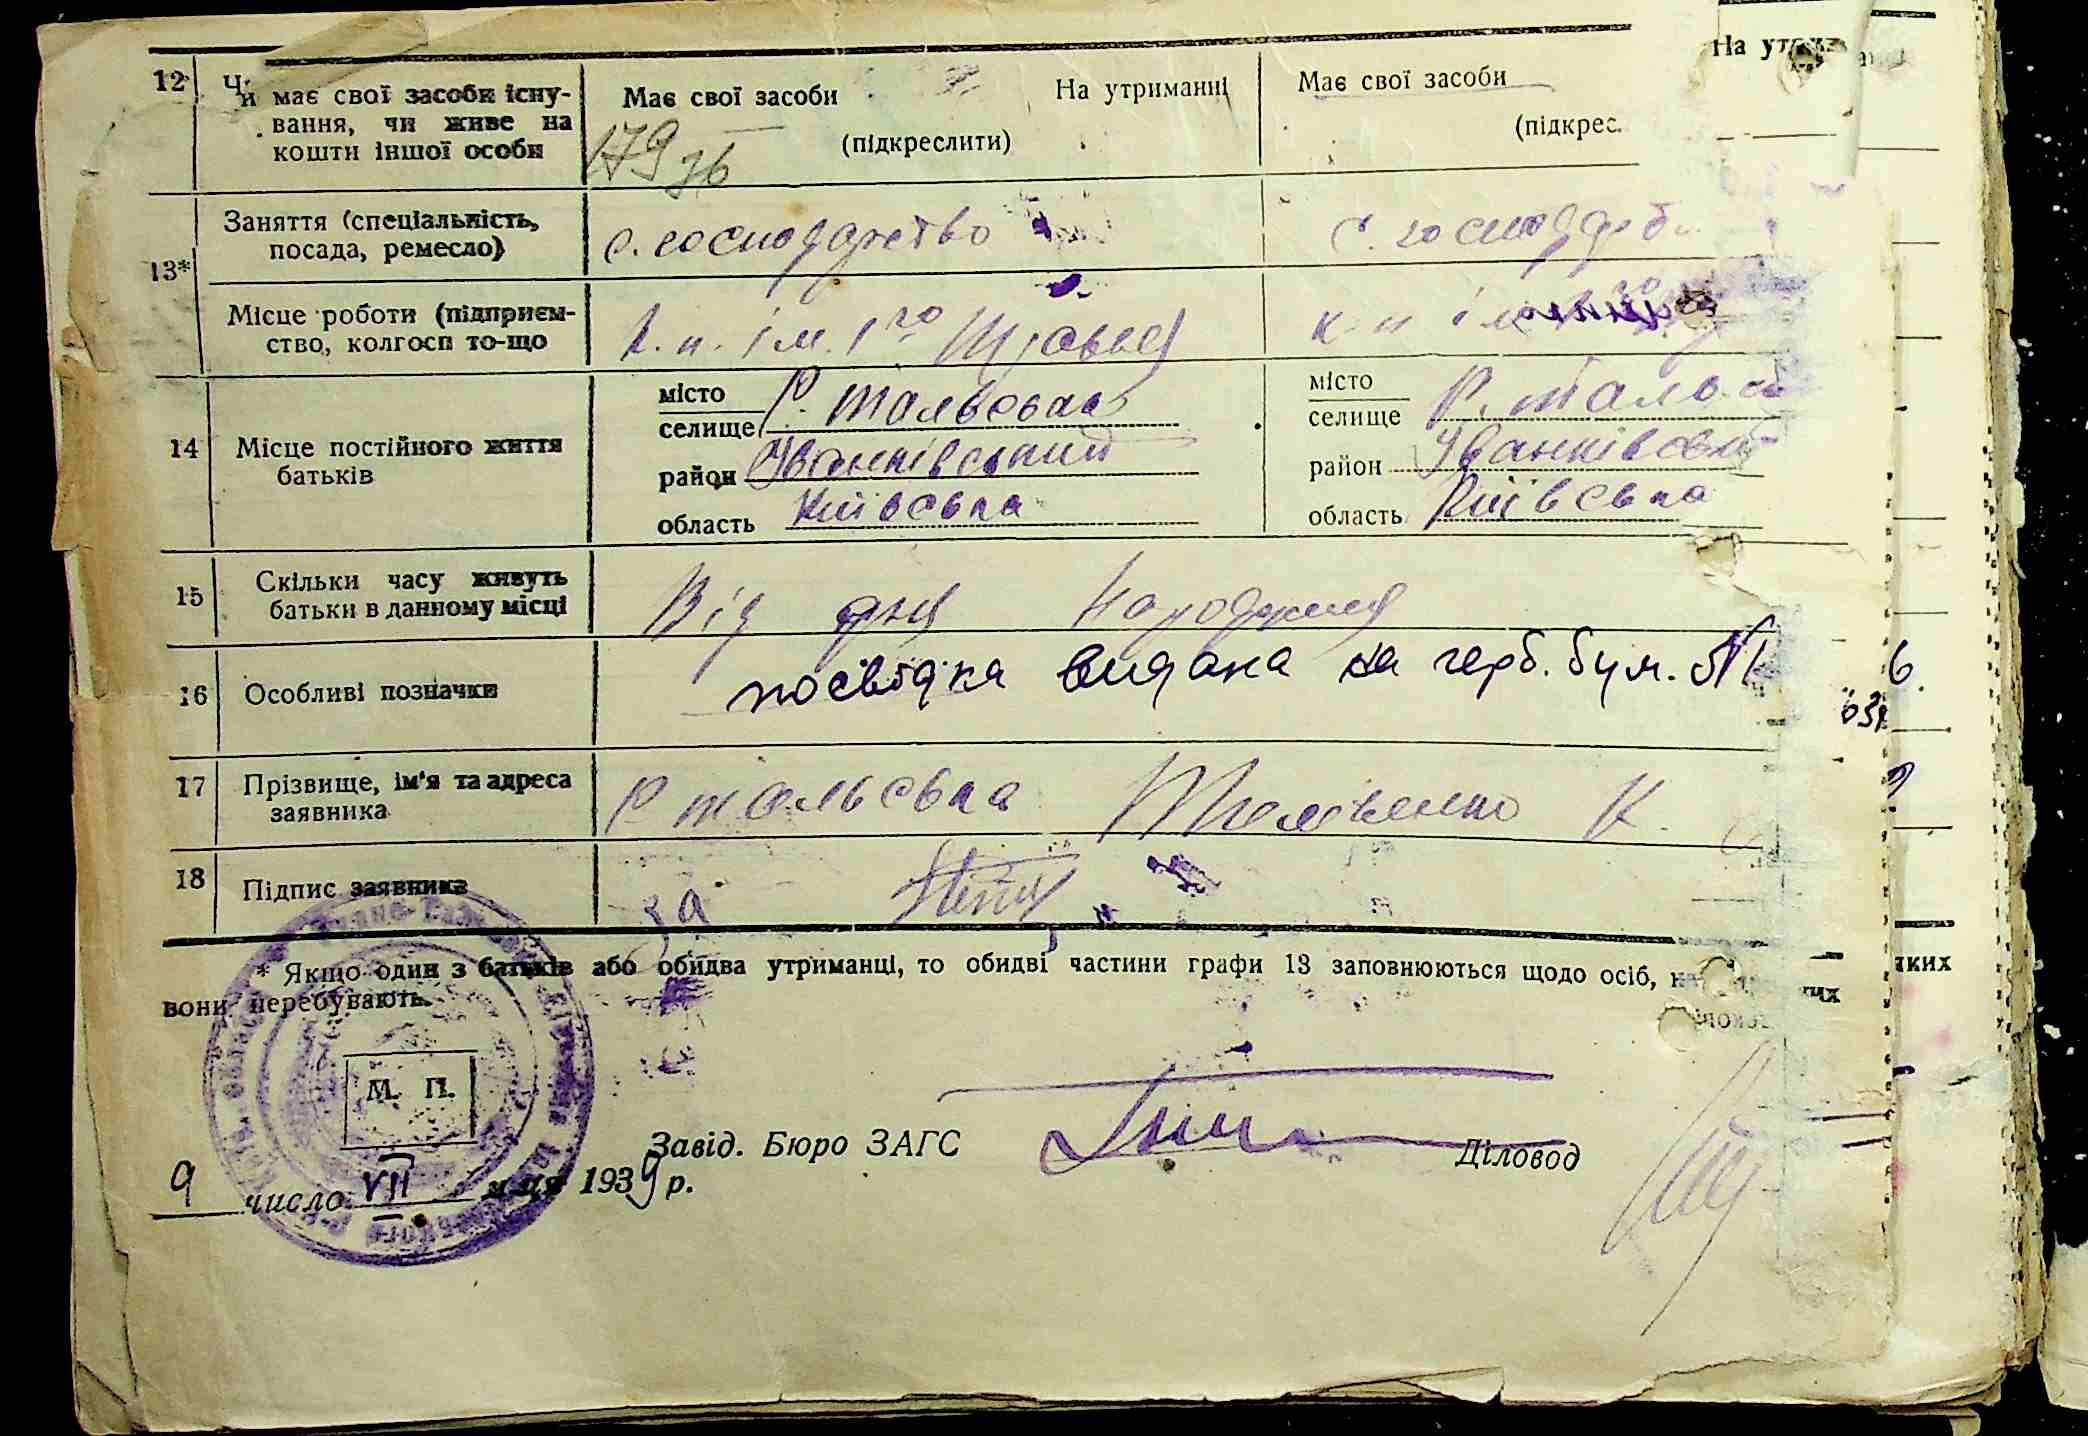 12 Чи має свої засоби існу- Має свої засоби На утриманні Має свої засоби На утриман
вання, чи живе на (підкреслити) (підкрес.
кошти іншої особи 179
Заняття (спеціальність, с. господарство с. господарств
посада, ремесло)
13*
Місце роботи (підприєм- к. п. ім. 1го Травня к п ім
ство, колгосп то-що
14 Місце постійного життя батьків
місто Р. Тальська місто Р. Тальс
селище селище
район Іванківський район Іванківськ
область Київська область Київська
15 Скільки часу живуть Від дня народження
батьки в данному місці
16 Особливі позначки посвідка видана на герб. бум. №
17 Прізвище, ім'я та адреса Р Тальська К.
заявника
18 Підпис заявника за
* Якщо один з батьків або обидва утриманці, то обидві частини графи 13 заповнюються щодо осіб, на яких
вони перебувають.
М. П.
Завід. Бюро ЗАГС Діловод
9 число VII м-ця 1939 р.